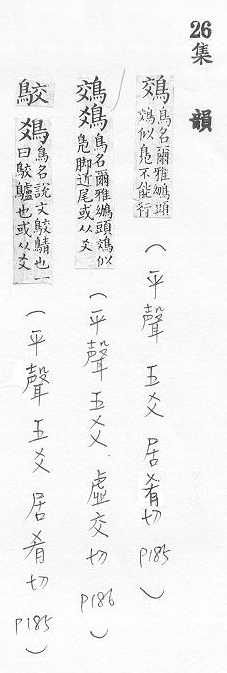 26 集韻
鵁 鳥名爾雅鳽頭鵁似鳧不能行 (平聲 五爻 居肴切 P185)
鵁䴔 鳥名爾雅鳽頭鵁似鳧脚近尾或从爻 (平聲 五爻 虛交切 P186)
鵁䴔 鳥名說文鵁鶄也一曰鵁鸕也或从爻 (平聲 五爻 居肴切 P185)